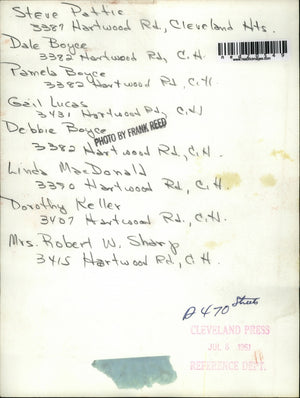 Steve Pattie
3387 Hartwood Rd., Cleveland Hts.
Dale Boyce
3382 Hartwood Rd, C.H.
Pamela Boyce
3382 Hartwood Rd, C.H.
Gail Lucas
3431 Hartwood Rd, C.H.
Debbie Boyce
3382 Hartwood Rd., C.H.
PHOTO BY FRANK REED
Linda MacDonald
3390 Hartwood Rd., C.H.
Dorothy Keller
3407 Hartwood Rd., C.H.
Mrs. Robert W. Sharp
3415 Hartwood Rd., C.H.
D 470 Streets
CLEVELAND PRESS
JUL 6 1961
REFERENCE DEPT.